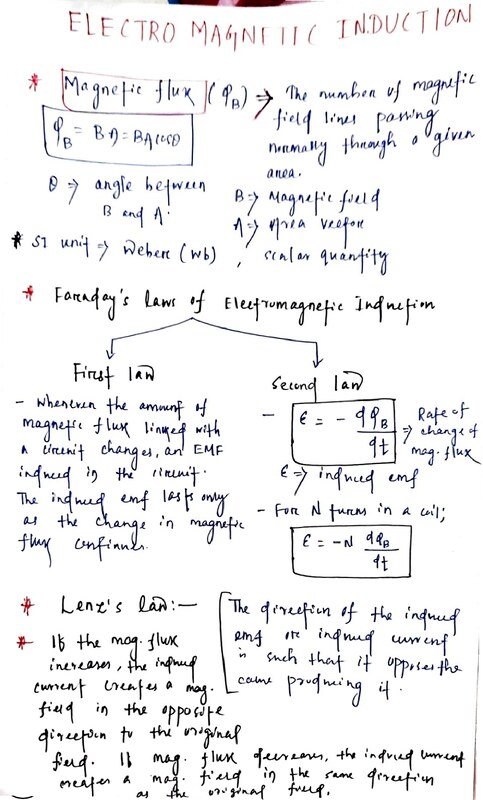 ELECTRO MAGNETIC INDUCTION
* Magnetic flux (φB) ⇒ The number of magnetic
field lines passing
normally through a given
area.
φB = BA = BA cosθ
θ ⇒ angle between
B and A.
B ⇒ Magnetic field
A ⇒ Area vector
* SI unit ⇒ Weber (wb), scalar quantity
* Faraday's laws of Electromagnetic Induction
First law
- Whenever the amount of
magnetic flux linked with
a circuit changes, an EMF
induced in the circuit.
The induced emf lasts only
as the change in magnetic
flux continues.
Second law
- ε = - dφB/dt ⇒ Rate of
change of
mag. flux
ε ⇒ induced emf
- For N turns in a coil;
ε = -N dφB/dt
* Lenz's law:-
The direction of the induced
emf or induced current
is such that it opposes the
cause producing it.
* If the mag. flux
increases, the induced
current creates a mag.
field in the opposite
direction to the original
field. If mag. flux decreases, the induced current
creates a mag. field in the same direction
as the original field.